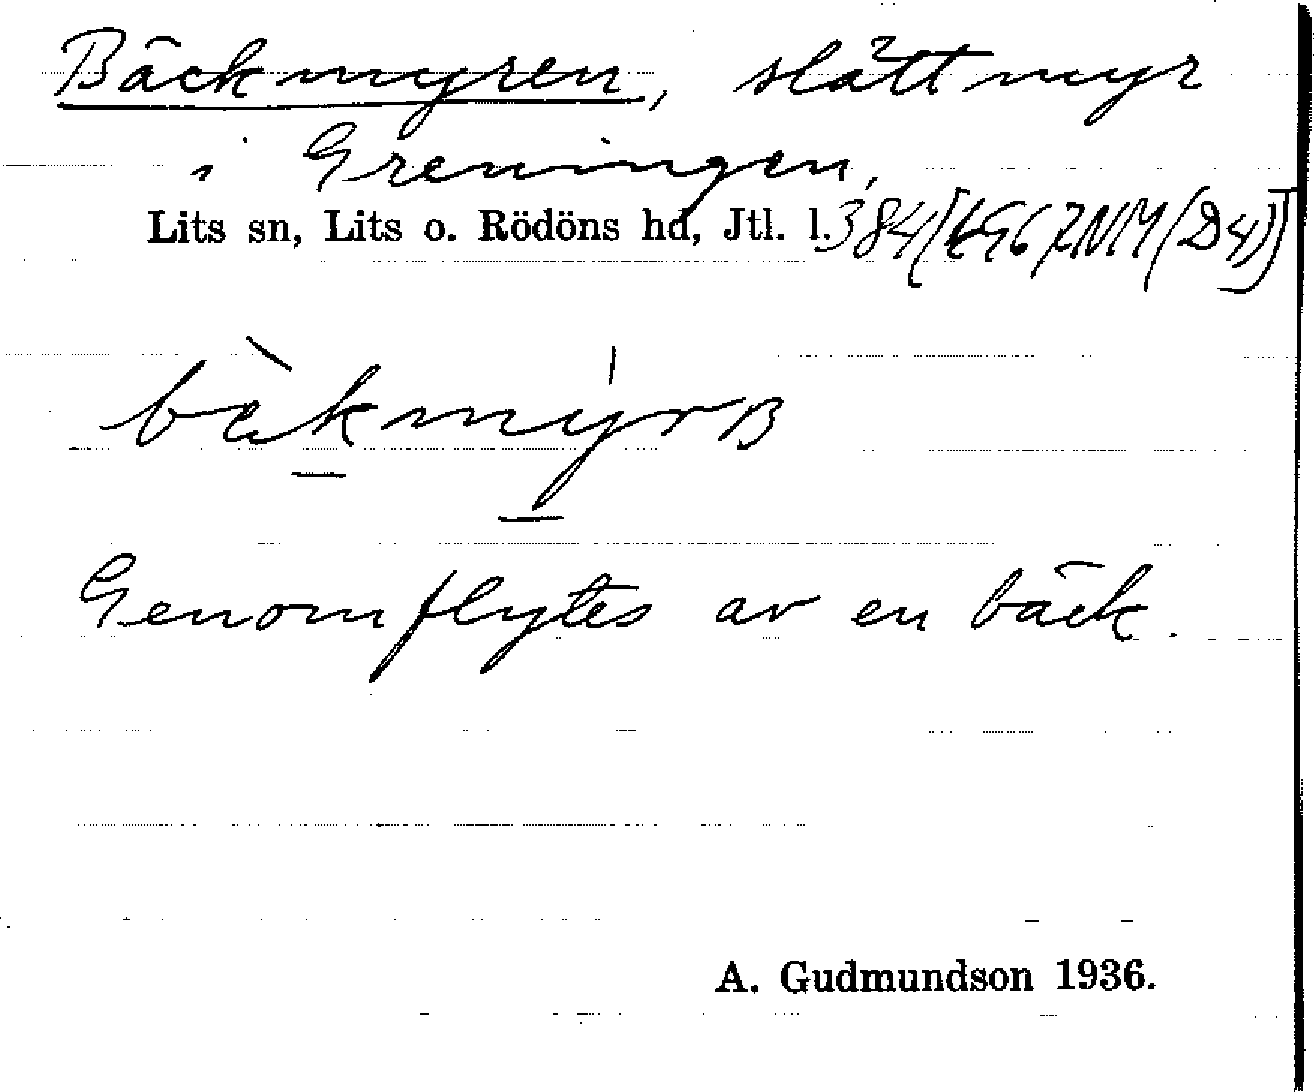 Bäckmyren, slåttmyr
i Greningen,
Lits sn, Lits o. Rödöns hd, Jtl. l.
Genomflytes av en bäck.
A. Gudmundson 1936.